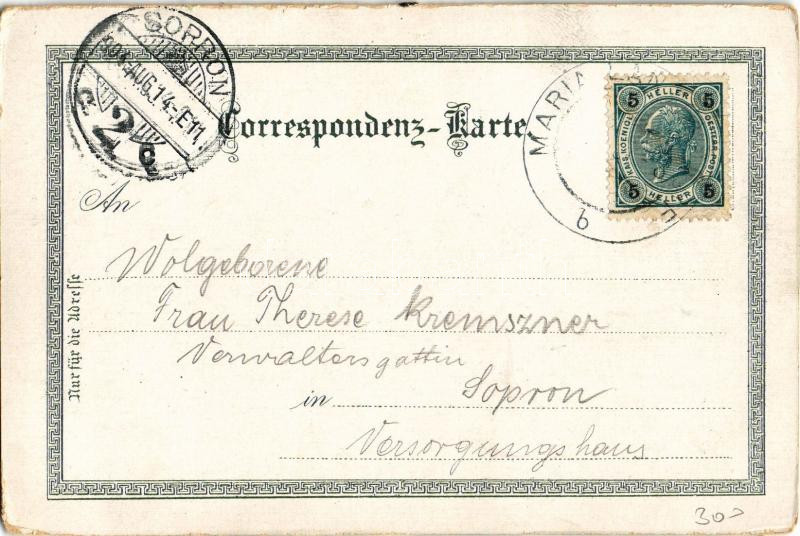 SOPRON
904 AUG. 14-E11
2
c c
Correspondenz-Karte
MARIA
b
5 HELLER 5
KAIS. KOENIGL. OESTERR. POST
5 HELLER 5
An
Wolgeborene
Frau Therese Kremszner
Verwaltersgattin
in Sopron
Versorgungshaus
Nur für die Adresse
30